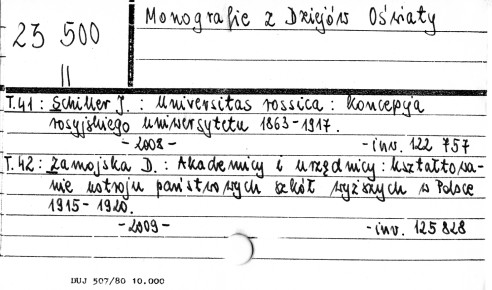 23 500
II
Monografie z Dziejów Oświaty
T.41 : Schiller J. : Universitas rossica : Koncepcja
rosyjskiego uniwersytetu 1863-1917.
-2008- -inv. 122 757
T.42 : Zamojska D. : Akademicy i urzędnicy : kształtowa-
nie ustroju państwowych szkół wyższych w Polsce
1915-1920.
-2009- -inv. 125 828
BUJ 507/80 10.000